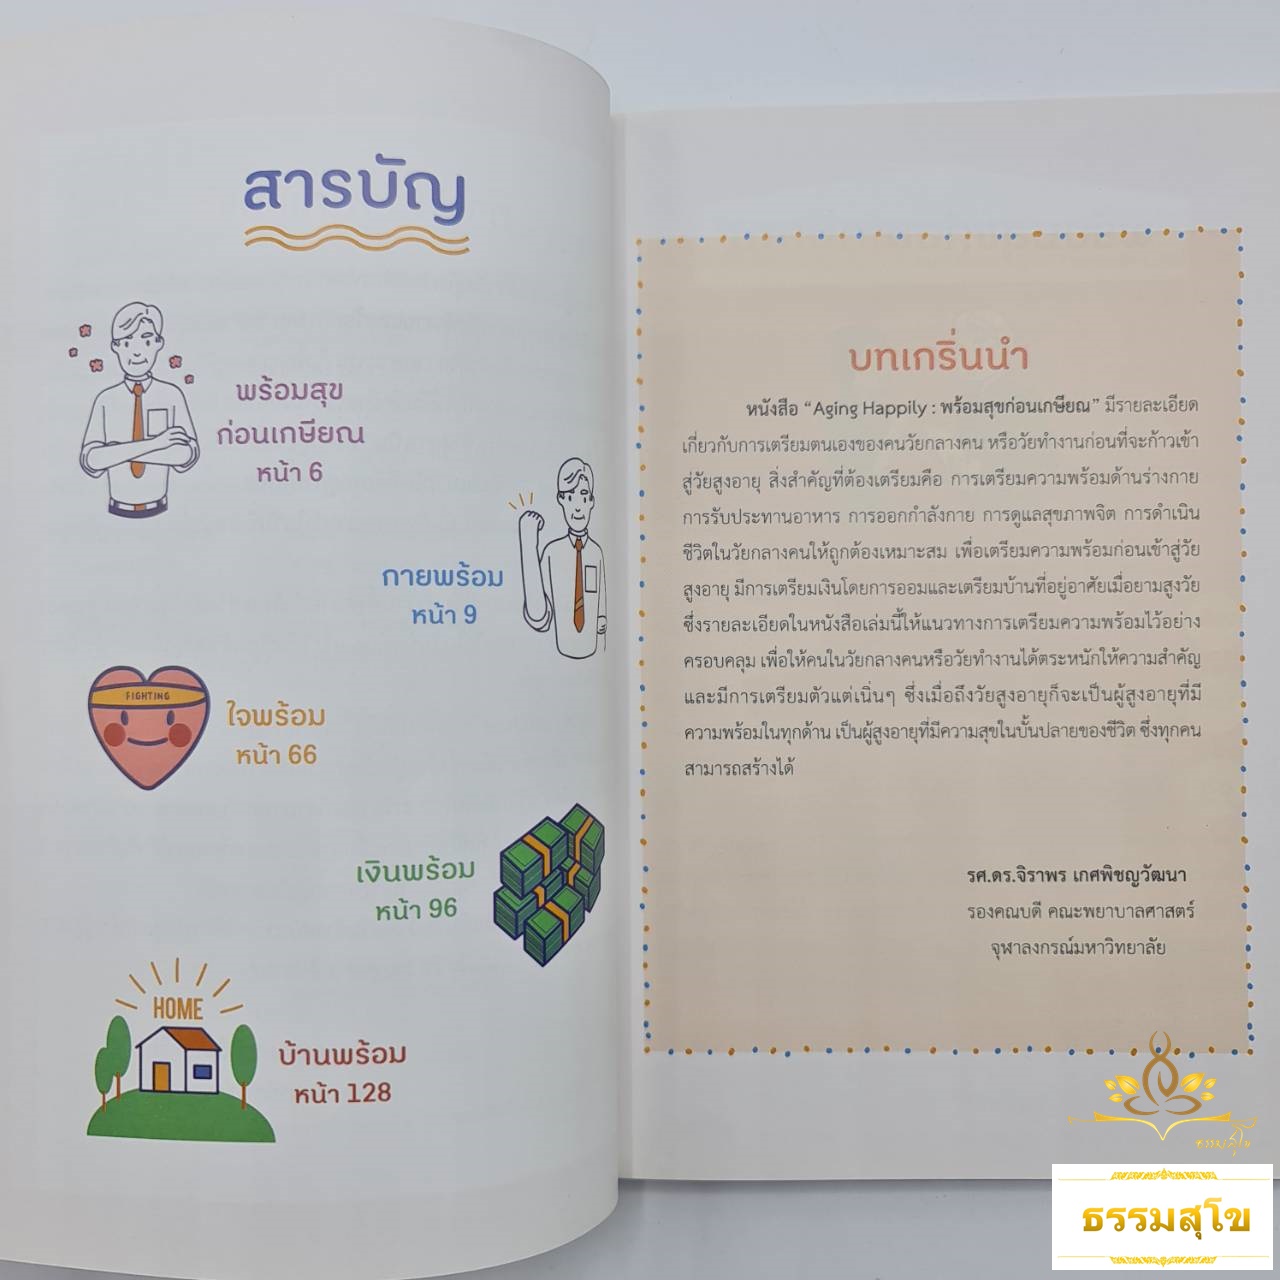 สารบัญ
พร้อมสุข
ก่อนเกษียณ
หน้า 6
กายพร้อม
หน้า 9
FIGHTING
ใจพร้อม
หน้า 66
เงินพร้อม
หน้า 96
HOME
บ้านพร้อม
หน้า 128
บทเกริ่นนำ
หนังสือ “Aging Happily : พร้อมสุขก่อนเกษียณ” มีรายละเอียด
เกี่ยวกับการเตรียมตนเองของคนวัยกลางคน หรือวัยทำงานก่อนที่จะก้าวเข้า
สู่วัยสูงอายุ สิ่งสำคัญที่ต้องเตรียมคือ การเตรียมความพร้อมด้านร่างกาย
การรับประทานอาหาร การออกกำลังกาย การดูแลสุขภาพจิต การดำเนิน
ชีวิตในวัยกลางคนให้ถูกต้องเหมาะสม เพื่อเตรียมความพร้อมก่อนเข้าสู่วัย
สูงอายุ มีการเตรียมเงินโดยการออมและเตรียมบ้านที่อยู่อาศัยเมื่อยามสูงวัย
ซึ่งรายละเอียดในหนังสือเล่มนี้ให้แนวทางการเตรียมความพร้อมไว้อย่าง
ครอบคลุม เพื่อให้คนในวัยกลางคนหรือวัยทำงานได้ตระหนักให้ความสำคัญ
และมีการเตรียมตัวแต่เนิ่นๆ ซึ่งเมื่อถึงวัยสูงอายุก็จะเป็นผู้สูงอายุที่มี
ความพร้อมในทุกด้าน เป็นผู้สูงอายุที่มีความสุขในบั้นปลายของชีวิต ซึ่งทุกคน
สามารถสร้างได้
รศ.ดร.จิราพร เกศพิชญวัฒนา
รองคณบดี คณะพยาบาลศาสตร์
จุฬาลงกรณ์มหาวิทยาลัย
ธรรมสุโข
ธรรมสุโข